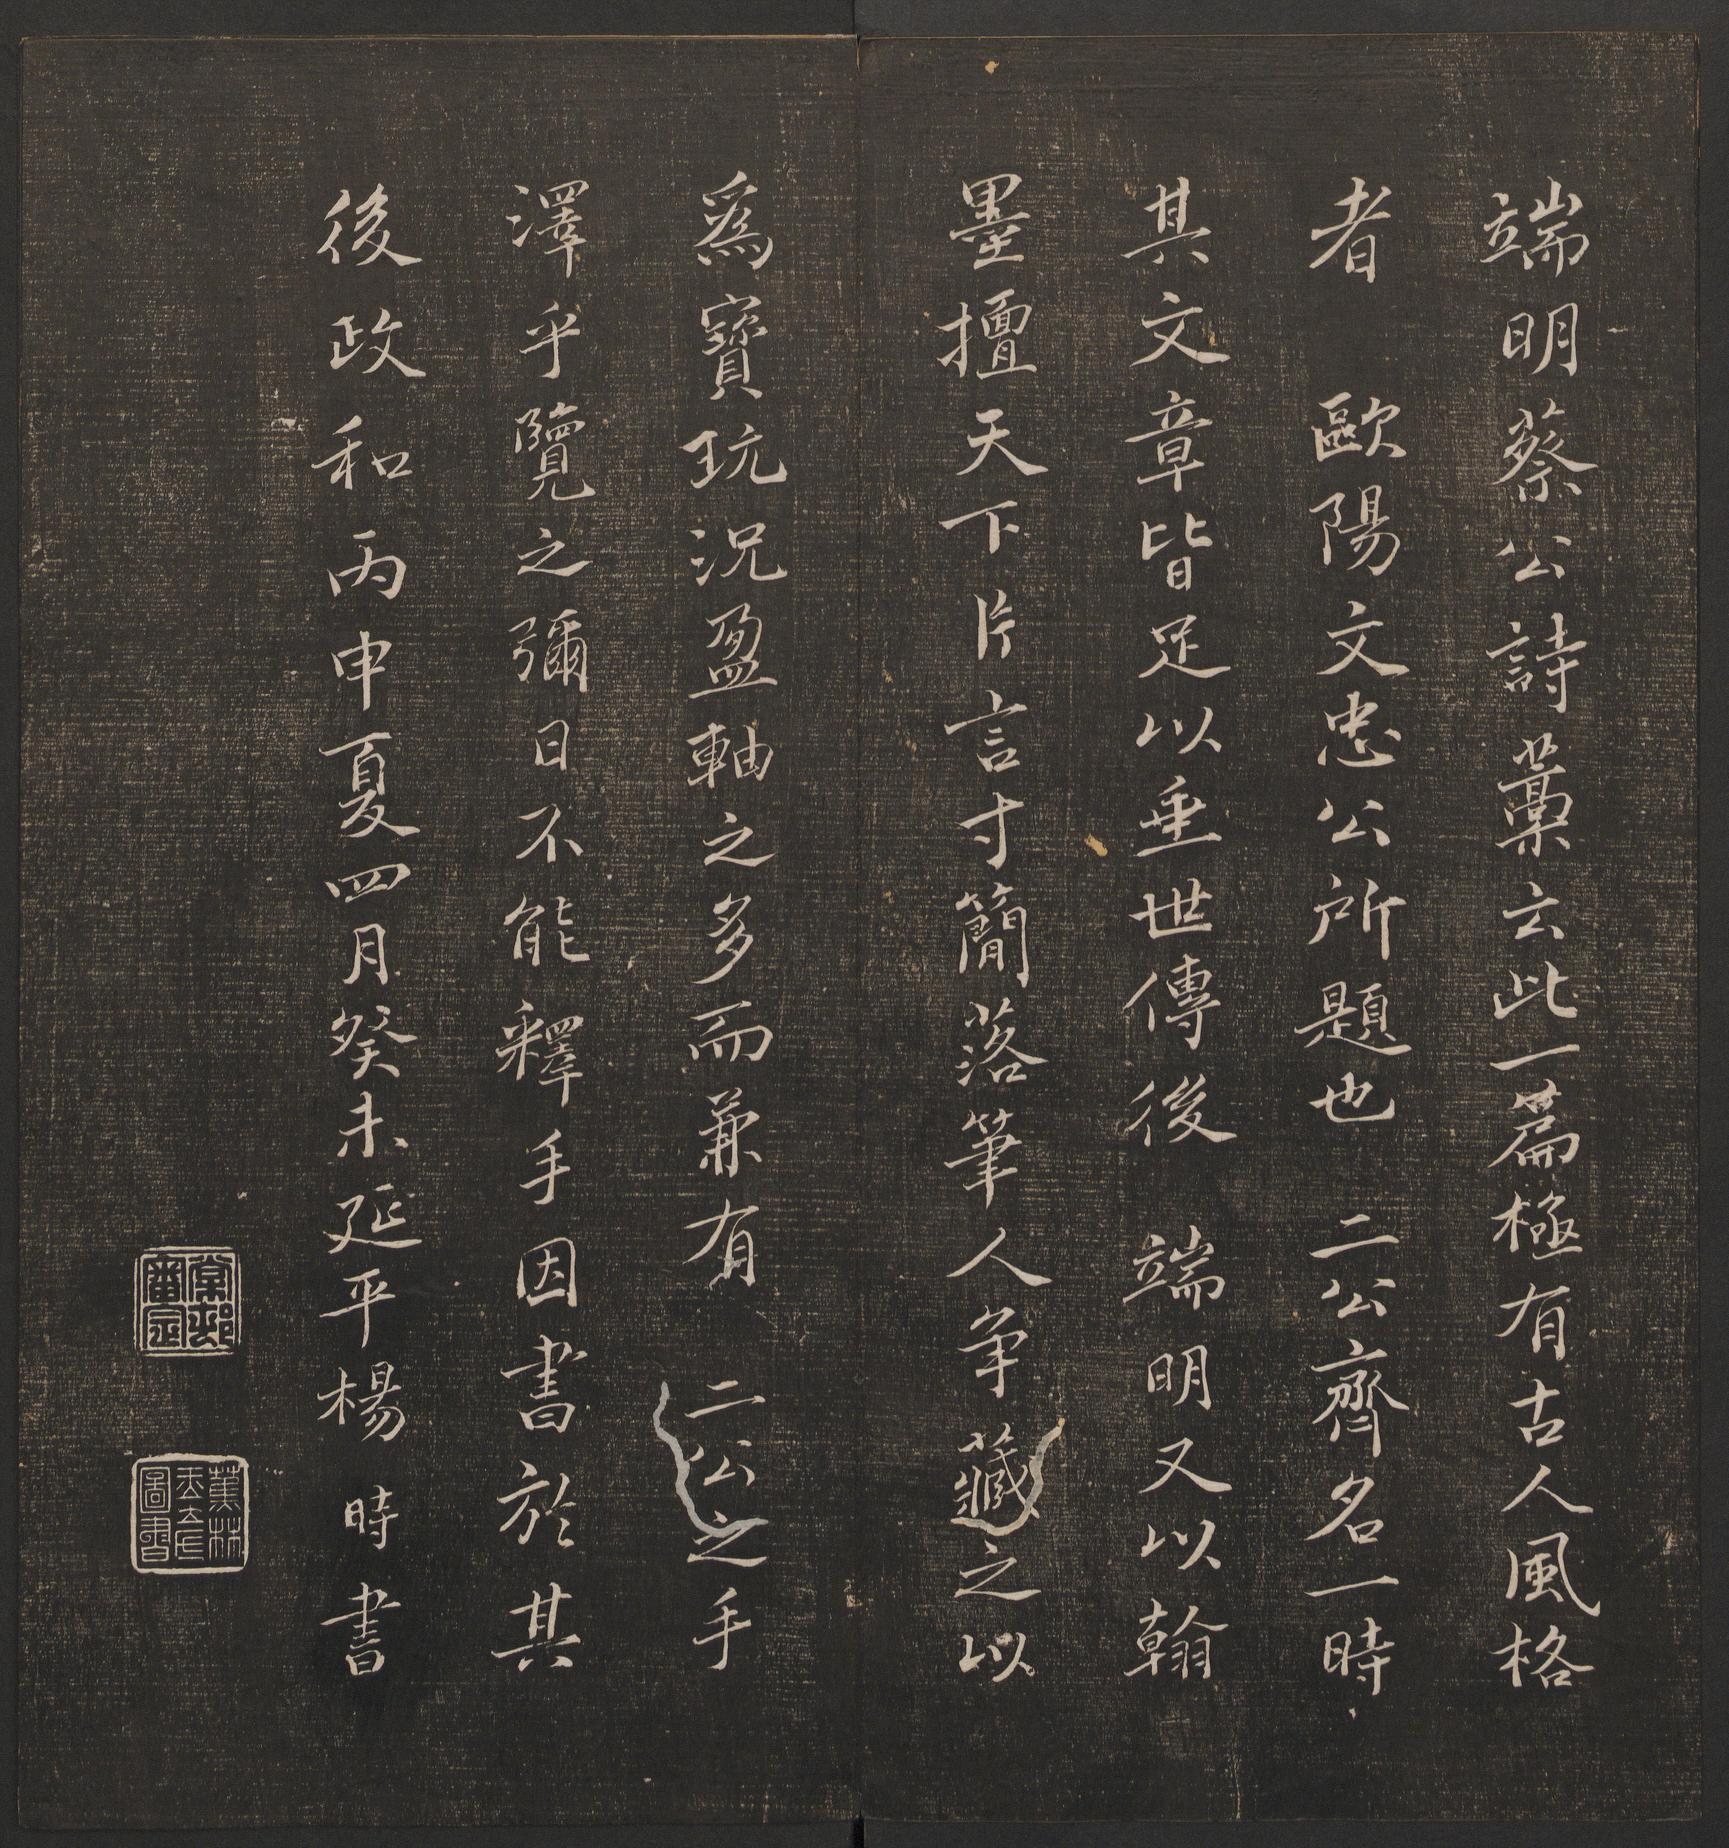 端明蔡公詩藁云此一篇極有古人風格
者　歐陽文忠公所題也　二公齊名一時
其文章皆足以垂世傳後　端明又以翰
墨擅天下片言寸簡落筆人爭藏之以
爲寶玩況盈軸之多而兼有　二公之手
澤乎覽之彌日不能釋手因書於其
後政和丙申夏四月癸未延平楊時書
棠邨審定
蕉林玉立氏圖書